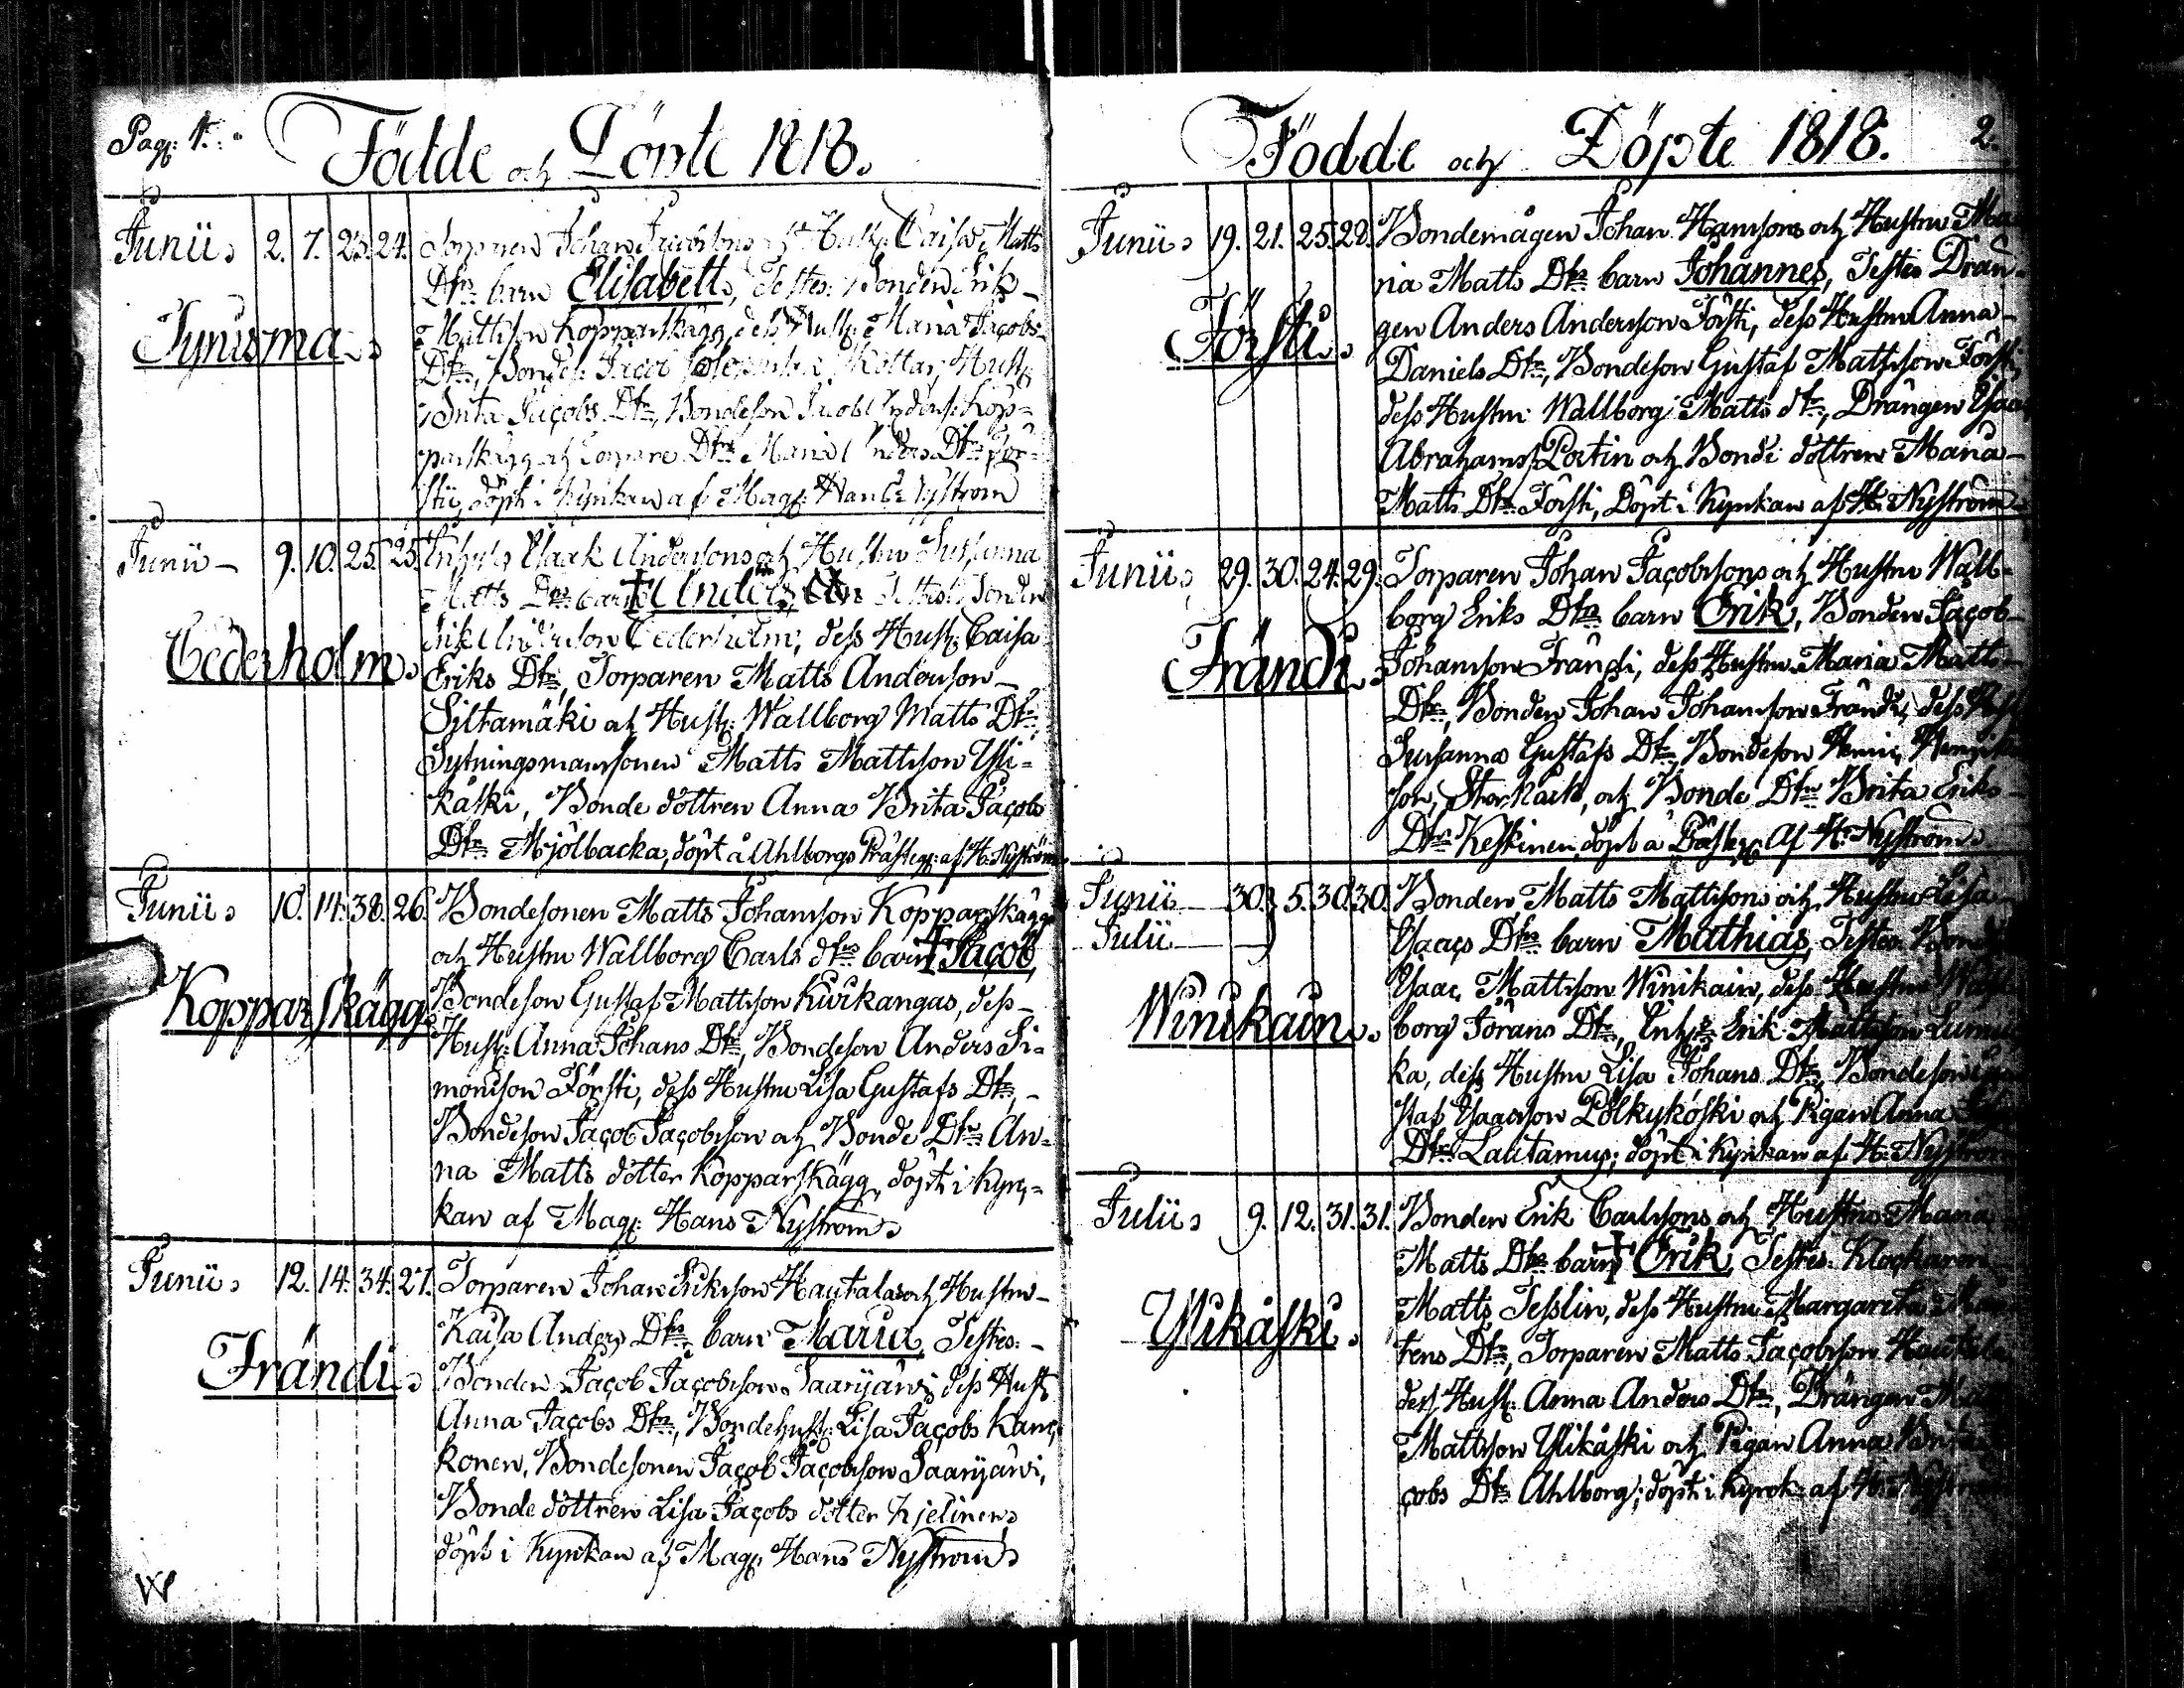 Pag: 1.
Födde och Döpte 1818.
Junii 2. 7. 23. 24. Torparen Johan Jacobsons och Hust: Caisa Matts
Dtrs barn Elisabett, Testes: Bonden Erik
Mattsson Kopparskägg, dess Hust: Maria Jacobs
Tynisma
Dtr, Bonden Jacob Hust:
Brita Jacobs Dtr, Bondeson Jacob Anders: Kop=
parskägg och Torpare Dtr Maria Anders Dtr För=
sti, döpt i Kyrkan af Mag: Hans Nyström
Junii 9. 10. 25. 25. Enhys Isaak Andersons och Hustru Susanna
Matts Dtrs barn † Anders, Testes: Bonden
Erik Anderson Cederholm, dess Hust: Caisa
Cederholm
Eriks Dtr, Torparen Matts Anderson
Siltamäki och Hust: Wallborg Matts Dtr,
Sytningsmansonen Matts Mattsson Yli=
käski, Bonde dottren Anna Brita Jacobs
Dtr Mjölbacka, döpt å Ahlborgs Prästeg: af H: Nyström
Junii 10. 14. 38. 26. Bondesonen Matts Johanson Kopparskägg
och Hustru Wallborg Carls dtrs barn † Jacob,
Bondeson Gustaf Mattson Kurkangas, dess
Kopparskägg
Hust: Anna Johans Dtr, Bondeson Anders Si=
monson Försti, dess Hustru Lisa Gustafs Dtr,
Bondeson Jacob Jacobson och Bonde Dtr An=
na Matts dotter Kopparskägg, döpt i Kyr=
kan af Mag: Hans Nyström
Junii 12. 14. 34. 27. Torparen Johan Erikson Hautala och Hustru
Kaisa Anders Dtrs barn Maria, Testes:
Frändi
Bonden Jacob Jacobson Saarijärvi, dess Hust:
Anna Jacobs Dtr, Bondehust: Lisa Jacobs Kan=
konen, Bondesonen Jacob Jacobson Saarijärvi,
Bonde dottren Lisa Jacobs dotter Kjelinen
döpt i Kyrkan af Mag: Hans Nyström
W
Födde och Döpte 1818. 2.
Junii 19. 21. 25. 22. Bondemågen Johan Hansons och Hustru Ma
ria Matts Dtrs barn Johannes, Testes Drän=
gen Anders Andersson Försti, dess Hustru Anna
Försti
Daniels Dtr, Bondeson Gustaf Mattsson Försti,
dess Hustru Wallborg Matts dtr, Drängen Isaac
Abrahamss Portin och Bonde dottren Maria
Matts Dtr Försti, Döpt i Kyrkan af H: Nyström
Junii 29. 30. 24. 29. Torparen Johan Jacobsons och Hustru Wall=
borg Eriks Dtrs barn Erik, Bonden Jacob
Frändi
Johanson Frändi, dess Hustru Maria Matts
Dtr, Bonden Johan Johanson Frändi, dess Hust
Susanna Gustafs Dtr, Bondeson Henric Henrik
son Storkåck, och Bonde Dtr Brita Eriks
Dtr Keskinen, döpt å Prästeg: Af H: Nyström
Junii 30. 5. 30. 30. Bonden Matts Mattsons och Hustru Lisa
Julii
Isaacs Dtrs barn Mathias, Testes: Bonden
Isaac Mattsson Winikain, dess Hustru Wall
Winikain
borg Jörans Dtr, Enhys Erik Mattsson
ka, dess Hustru Lisa Johans Dtr, Bondeson Gu
staf Isaacson Pölkykoski och Pigan Anna
Dtr Lautamus, döpt i Kyrkan af H: Nyström
Julii 9. 12. 31. 31. Bonden Erik Carlsons och Hustrus Maria
Matts Dtrs barn † Erik, Testes: Klockaren
Matts Tesslin, dess Hustru Margareta Mår
Ylikäski
tens Dtr, Torparen Matts Jacobson Hautala
dess Hust: Anna Anders Dtr, Drängen Matts
Mattsson Ylikäski och Pigan Anna Brita
cobs Dtr Ahlborg, döpt i Kyrck: af H: Nyström